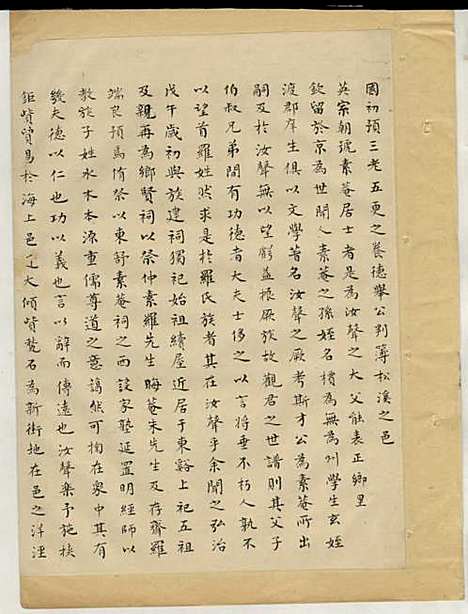 國初預三老五更之養德舉公判簿松溪之邑
英宗朝號素菴居士者是為汝聲之大父能表正鄉里
欽留於京為世聞人素菴之孫姪名 為無為州學生玄姪
渡郡庠生俱以文學著名汝聲之厥考斯才公為素菴所出
嗣及於汝聲無以望 益振厥族故觀君之世譜則其父子
伯叔兄弟間有功德者大夫士侈之以言將垂不朽人孰不
以望首羅姓然求是於羅氏族者其在汝聲乎余聞之弘治
戊午歲初與族建祠獨祀始祖續屋近居于東谿上祀五祖
及親再為鄉賢祠以祭仲素羅先生晦菴朱先生及存齋羅
端良預焉侑祭以東舒素菴祠之西設家塾延置明經師以
教族子姓水木本源重儒尊道之意謁然可掬在象中其有
幾夫德以仁也功以義也言以辭而傳遠也汝聲樂予施挾
鉅貲貿易於海上邑 大傾貲甃石為新街地在邑之洋浬